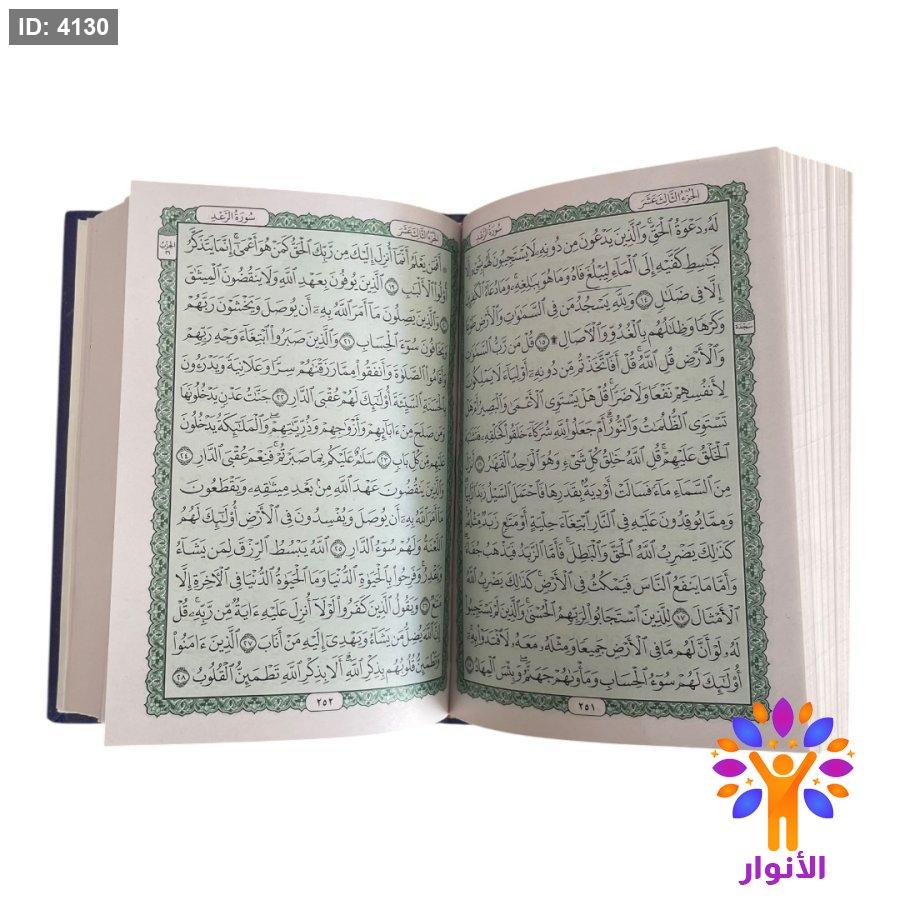 ID: 4130
الجزء الثالث عشر
سورة الرعد
لَهُۥ دَعْوَةُ ٱلْحَقِّ ۖ وَٱلَّذِينَ يَدْعُونَ مِن دُونِهِۦ لَا يَسْتَجِيبُونَ لَهُم بِشَىْءٍ إِلَّا
كَبَٰسِطِ كَفَّيْهِ إِلَى ٱلْمَآءِ لِيَبْلُغَ فَاهُ وَمَا هُوَ بِبَٰلِغِهِۦ ۚ وَمَا دُعَآءُ ٱلْكَٰفِرِينَ
إِلَّا فِى ضَلَٰلٍ ١٤ وَلِلَّهِ يَسْجُدُ مَن فِى ٱلسَّمَٰوَٰتِ وَٱلْأَرْضِ طَوْعًا
وَكَرْهًا وَظِلَٰلُهُم بِٱلْغُدُوِّ وَٱلْءَاصَالِ ۩ ١٥ قُلْ مَن رَّبُّ ٱلسَّمَٰوَٰتِ
وَٱلْأَرْضِ قُلِ ٱللَّهُ ۚ قُلْ أَفَٱتَّخَذْتُم مِّن دُونِهِۦٓ أَوْلِيَآءَ لَا يَمْلِكُونَ
لِأَنفُسِهِمْ نَفْعًا وَلَا ضَرًّا ۚ قُلْ هَلْ يَسْتَوِى ٱلْأَعْمَىٰ وَٱلْبَصِيرُ أَمْ هَلْ
تَسْتَوِى ٱلظُّلُمَٰتُ وَٱلنُّورُ ۗ أَمْ جَعَلُوا۟ لِلَّهِ شُرَكَآءَ خَلَقُوا۟ كَخَلْقِهِۦ فَتَشَٰبَهَ
ٱلْخَلْقُ عَلَيْهِمْ ۚ قُلِ ٱللَّهُ خَٰلِقُ كُلِّ شَىْءٍ وَهُوَ ٱلْوَٰحِدُ ٱلْقَهَّٰرُ ١٦ أَنزَلَ
مِنَ ٱلسَّمَآءِ مَآءً فَسَالَتْ أَوْدِيَةٌۢ بِقَدَرِهَا فَٱحْتَمَلَ ٱلسَّيْلُ زَبَدًا رَّابِيًا ۚ
وَمِمَّا يُوقِدُونَ عَلَيْهِ فِى ٱلنَّارِ ٱبْتِغَآءَ حِلْيَةٍ أَوْ مَتَٰعٍ زَبَدٌ مِّثْلُهُۥ ۚ
كَذَٰلِكَ يَضْرِبُ ٱللَّهُ ٱلْحَقَّ وَٱلْبَٰطِلَ ۚ فَأَمَّا ٱلزَّبَدُ فَيَذْهَبُ جُفَآءً ۖ
وَأَمَّا مَا يَنفَعُ ٱلنَّاسَ فَيَمْكُثُ فِى ٱلْأَرْضِ ۚ كَذَٰلِكَ يَضْرِبُ ٱللَّهُ
ٱلْأَمْثَالَ ١٧ لِلَّذِينَ ٱسْتَجَابُوا۟ لِرَبِّهِمُ ٱلْحُسْنَىٰ ۚ وَٱلَّذِينَ لَمْ يَسْتَجِيبُوا۟
لَهُۥ لَوْ أَنَّ لَهُم مَّا فِى ٱلْأَرْضِ جَمِيعًا وَمِثْلَهُۥ مَعَهُۥ لَٱفْتَدَوْا۟ بِهِۦٓ ۚ
أُو۟لَٰٓئِكَ لَهُمْ سُوٓءُ ٱلْحِسَابِ وَمَأْوَىٰهُمْ جَهَنَّمُ ۖ وَبِئْسَ ٱلْمِهَادُ ١٨
سجدة
٢٥١
الجزء الثالث عشر
سورة الرعد
الحزب ٢٦
۞ أَفَمَن يَعْلَمُ أَنَّمَآ أُنزِلَ إِلَيْكَ مِن رَّبِّكَ ٱلْحَقُّ كَمَنْ هُوَ أَعْمَىٰٓ ۚ إِنَّمَا يَتَذَكَّرُ
أُو۟لُوا۟ ٱلْأَلْبَٰبِ ١٩ ٱلَّذِينَ يُوفُونَ بِعَهْدِ ٱللَّهِ وَلَا يَنقُضُونَ ٱلْمِيثَٰقَ
٢٠ وَٱلَّذِينَ يَصِلُونَ مَآ أَمَرَ ٱللَّهُ بِهِۦٓ أَن يُوصَلَ وَيَخْشَوْنَ رَبَّهُمْ
وَيَخَافُونَ سُوٓءَ ٱلْحِسَابِ ٢١ وَٱلَّذِينَ صَبَرُوا۟ ٱبْتِغَآءَ وَجْهِ رَبِّهِمْ
وَأَقَامُوا۟ ٱلصَّلَوٰةَ وَأَنفَقُوا۟ مِمَّا رَزَقْنَٰهُمْ سِرًّا وَعَلَانِيَةً وَيَدْرَءُونَ
بِٱلْحَسَنَةِ ٱلسَّيِّئَةَ أُو۟لَٰٓئِكَ لَهُمْ عُقْبَى ٱلدَّارِ ٢٢ جَنَّٰتُ عَدْنٍ يَدْخُلُونَهَا
وَمَن صَلَحَ مِنْ ءَابَآئِهِمْ وَأَزْوَٰجِهِمْ وَذُرِّيَّٰتِهِمْ ۖ وَٱلْمَلَٰٓئِكَةُ يَدْخُلُونَ
عَلَيْهِم مِّن كُلِّ بَابٍ ٢٣ سَلَٰمٌ عَلَيْكُم بِمَا صَبَرْتُمْ ۚ فَنِعْمَ عُقْبَى ٱلدَّارِ ٢٤
وَٱلَّذِينَ يَنقُضُونَ عَهْدَ ٱللَّهِ مِنۢ بَعْدِ مِيثَٰقِهِۦ وَيَقْطَعُونَ
مَآ أَمَرَ ٱللَّهُ بِهِۦٓ أَن يُوصَلَ وَيُفْسِدُونَ فِى ٱلْأَرْضِ ۙ أُو۟لَٰٓئِكَ لَهُمُ
ٱللَّعْنَةُ وَلَهُمْ سُوٓءُ ٱلدَّارِ ٢٥ ٱللَّهُ يَبْسُطُ ٱلرِّزْقَ لِمَن يَشَآءُ
وَيَقْدِرُ ۚ وَفَرِحُوا۟ بِٱلْحَيَوٰةِ ٱلدُّنْيَا وَمَا ٱلْحَيَوٰةُ ٱلدُّنْيَا فِى ٱلْءَاخِرَةِ إِلَّا
مَتَٰعٌ ٢٦ وَيَقُولُ ٱلَّذِينَ كَفَرُوا۟ لَوْلَآ أُنزِلَ عَلَيْهِ ءَايَةٌ مِّن رَّبِّهِۦ ۗ قُلْ
إِنَّ ٱللَّهَ يُضِلُّ مَن يَشَآءُ وَيَهْدِىٓ إِلَيْهِ مَنْ أَنَابَ ٢٧ ٱلَّذِينَ ءَامَنُوا۟
وَتَطْمَئِنُّ قُلُوبُهُم بِذِكْرِ ٱللَّهِ ۗ أَلَا بِذِكْرِ ٱللَّهِ تَطْمَئِنُّ ٱلْقُلُوبُ ٢٨
٢٥٢
الأنوار